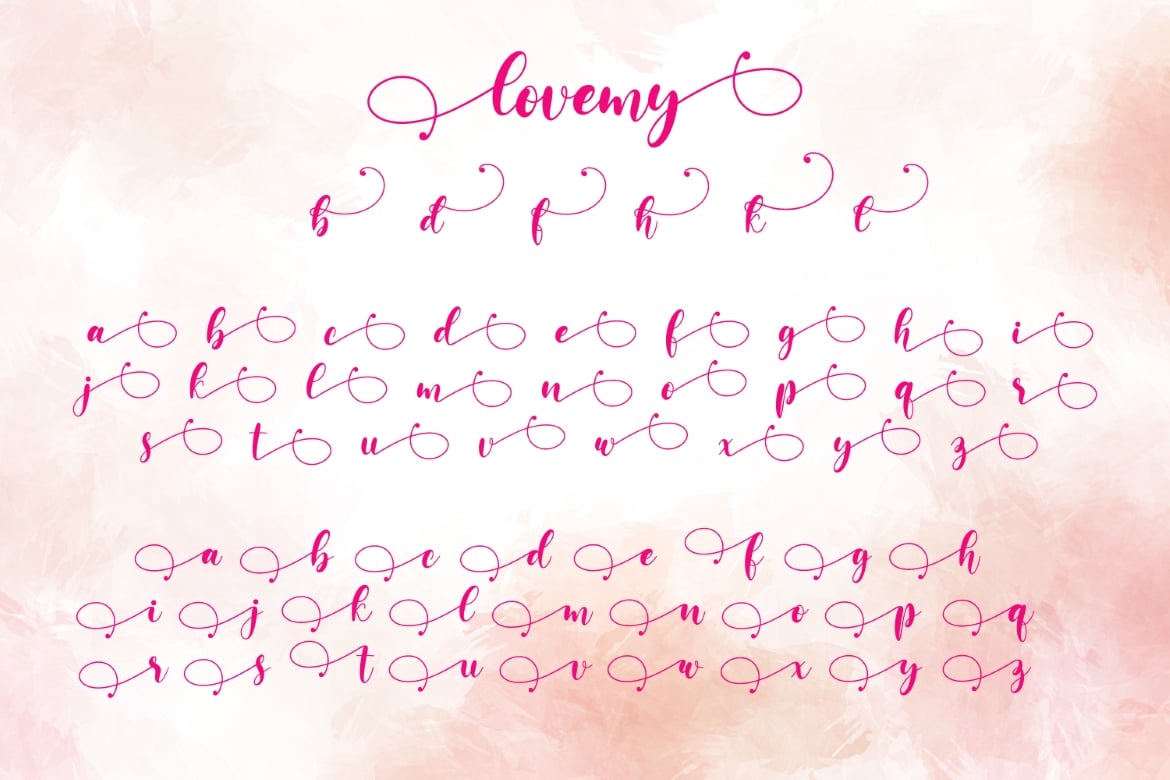 lovemy
b d f h k l
a b c d e f g h i
j k l m n o p q r
s t u v w x y z
a b c d e f g h
i j k l m n o p q
r s t u v w x y z